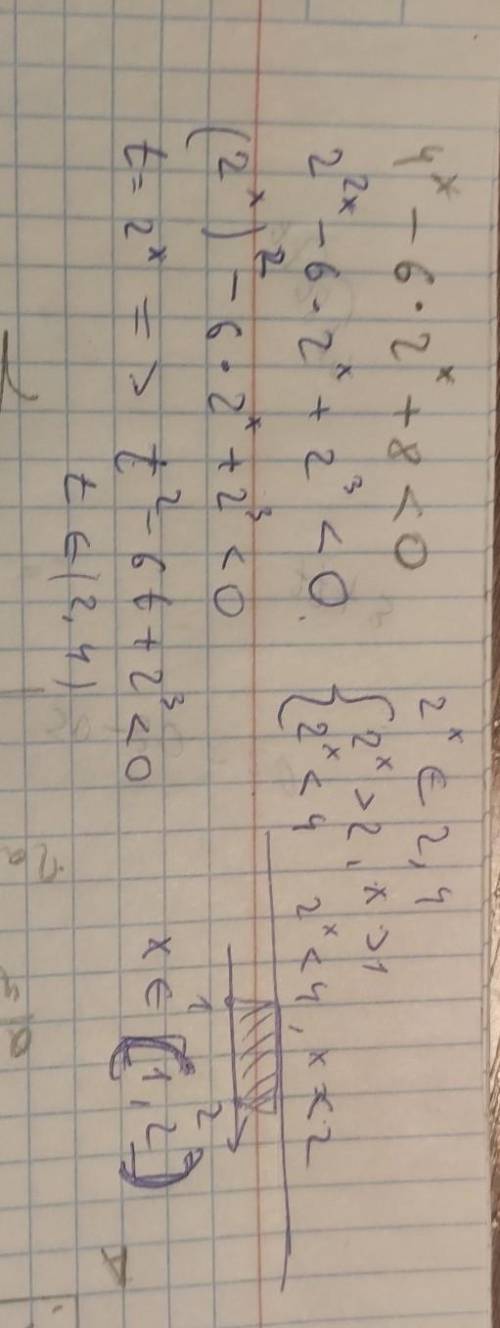 4^x - 6 · 2^x + 8 < 0
2^{2x} - 6 · 2^x + 2^3 < 0
(2^x)^2 - 6 · 2^x + 2^3 < 0
t = 2^x => t^2 - 6t + 2^3 < 0
t ∈ (2, 4)
2^x ∈ 2, 4
{ 2^x > 2, x > 1
{ 2^x < 4 2^x < 4, x < 2
1 2
x ∈ (1, 2)